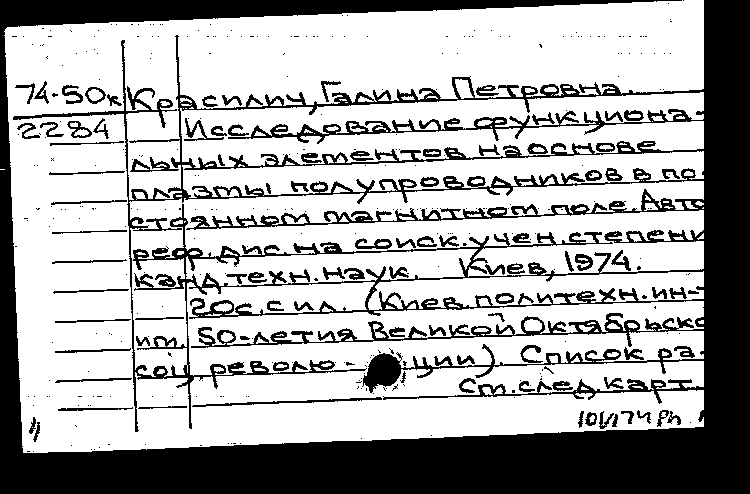 74-50к Красилич, Галина Петровна.
2284 Исследование функциона-
льных элементов на основе
плазмы полупроводников в по-
стоянном магнитном поле. Авто
реф. дис. на соиск. учен. степени
канд. техн. наук. Киев, 1974.
20с. с ил. (Киев. политехн. ин-т
им. 50-летия Великой Октябрьско
соц. револю- ции). Список ра-
См. след. карт
4